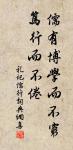 儒有博學而不窮
篤行而不倦
禮記儒行詞典網書